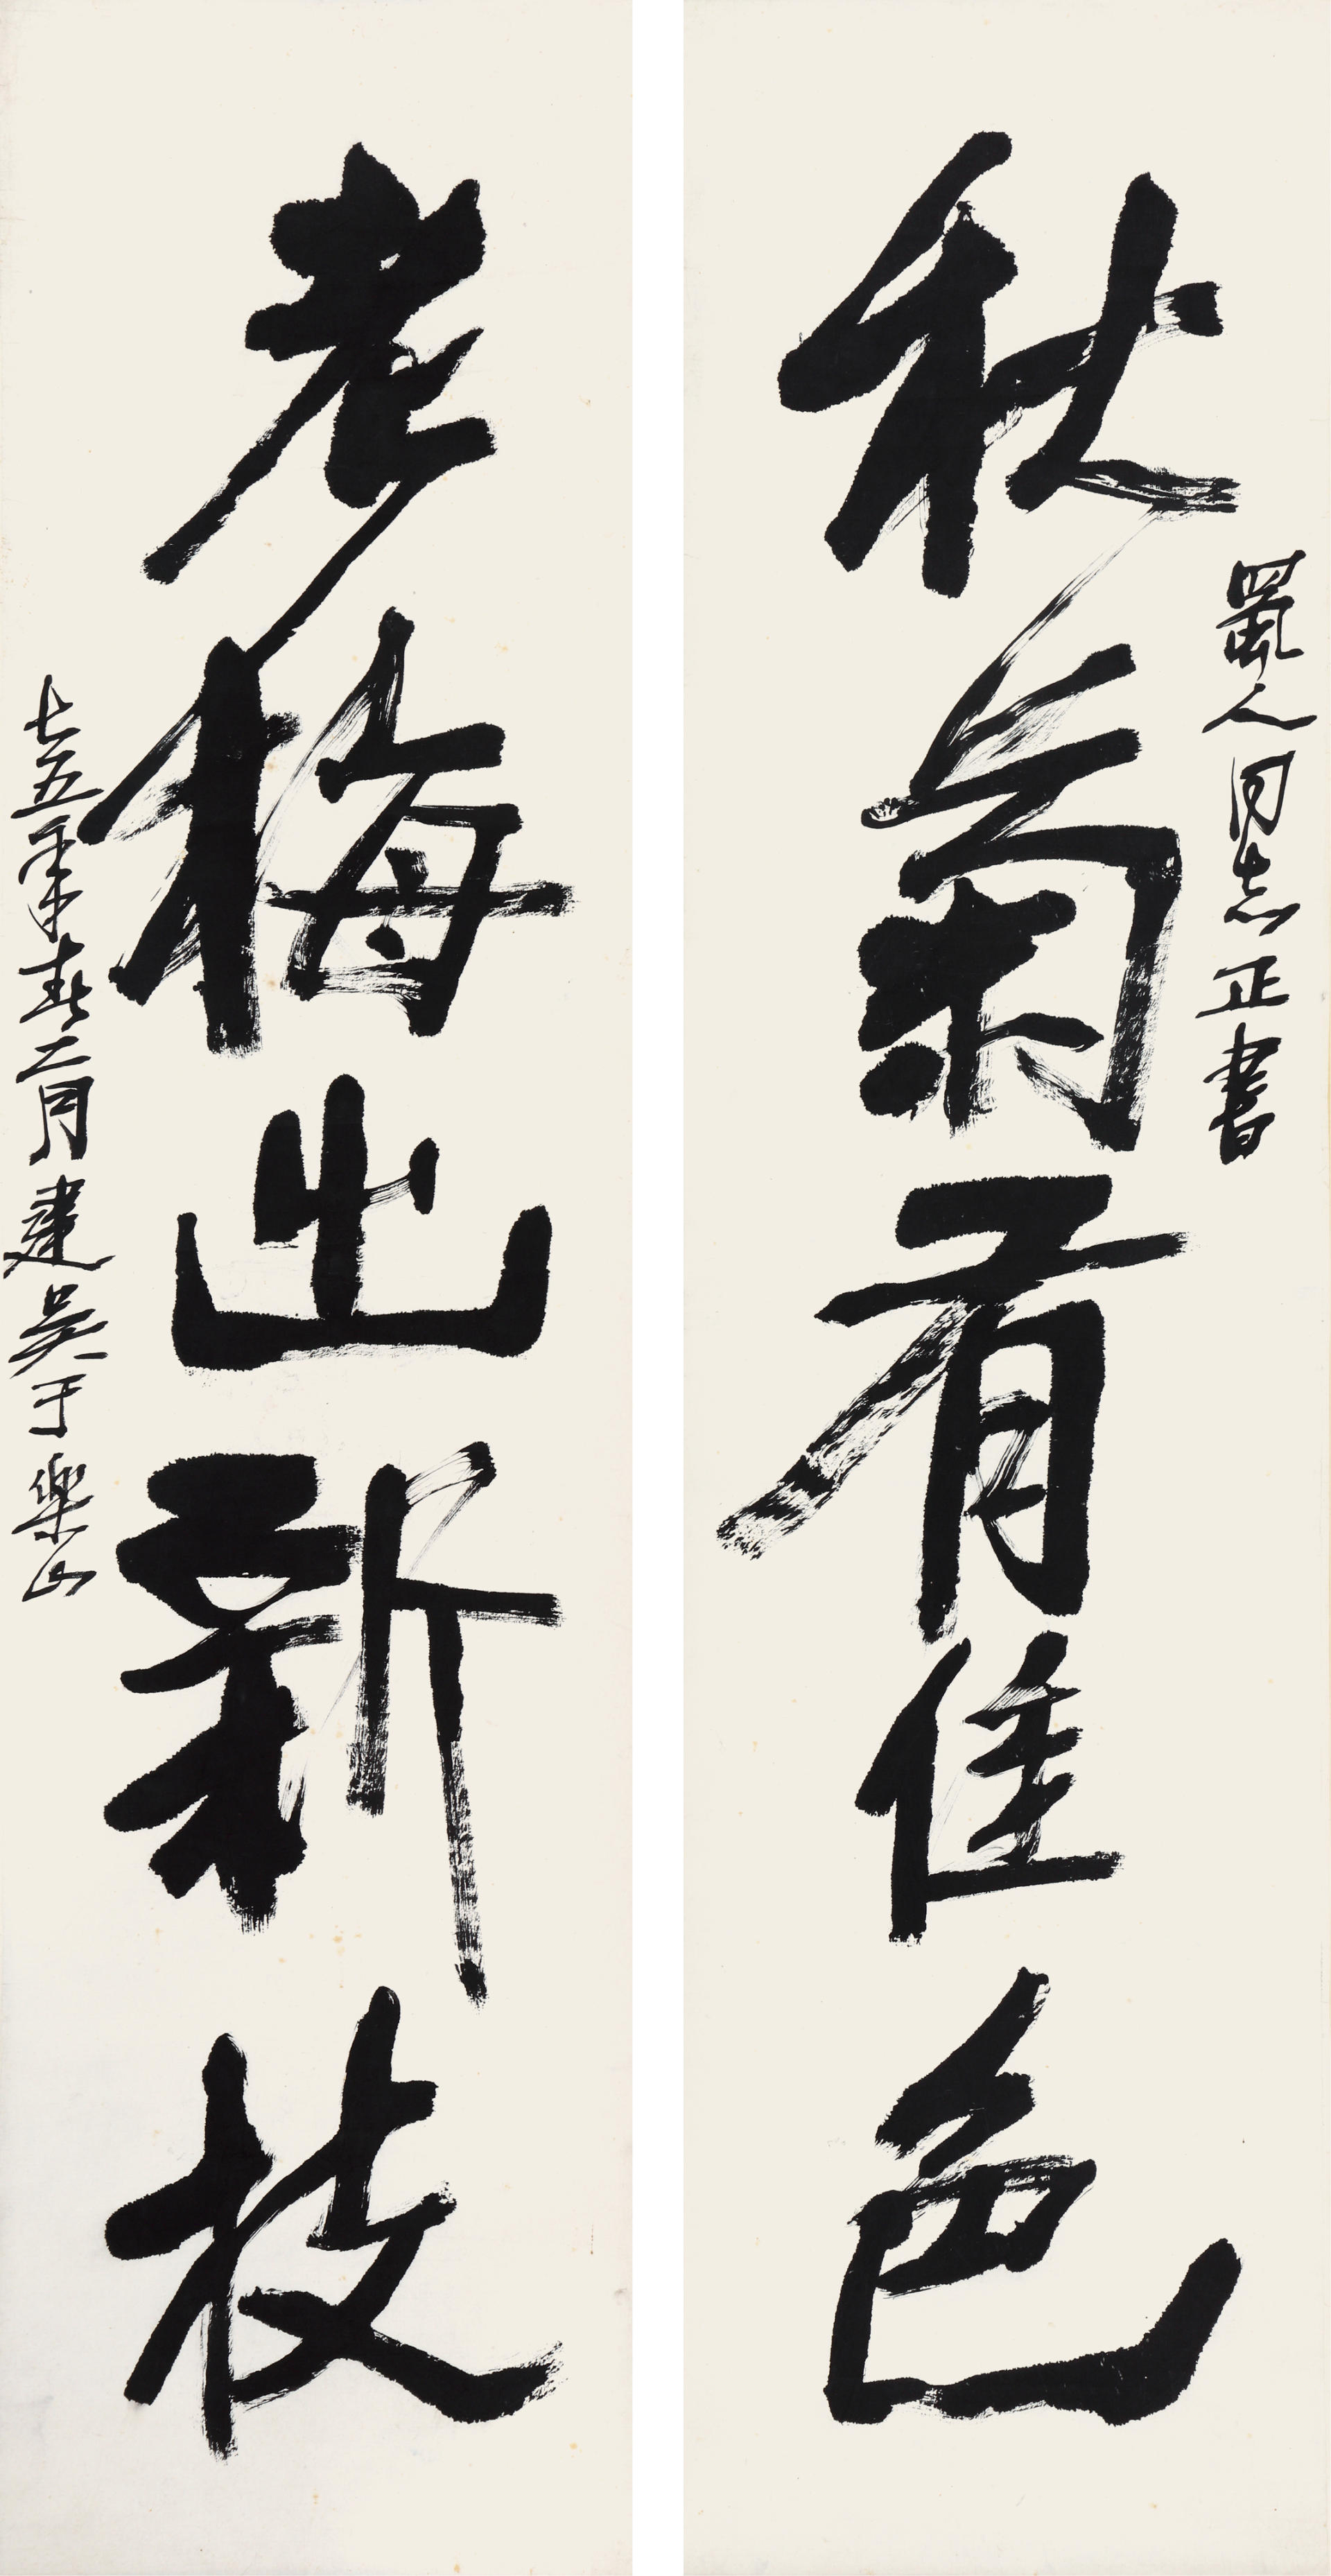 秋菊有佳色
蜀人同志正書
老梅出新枝
七五年春二月建吴于樂山